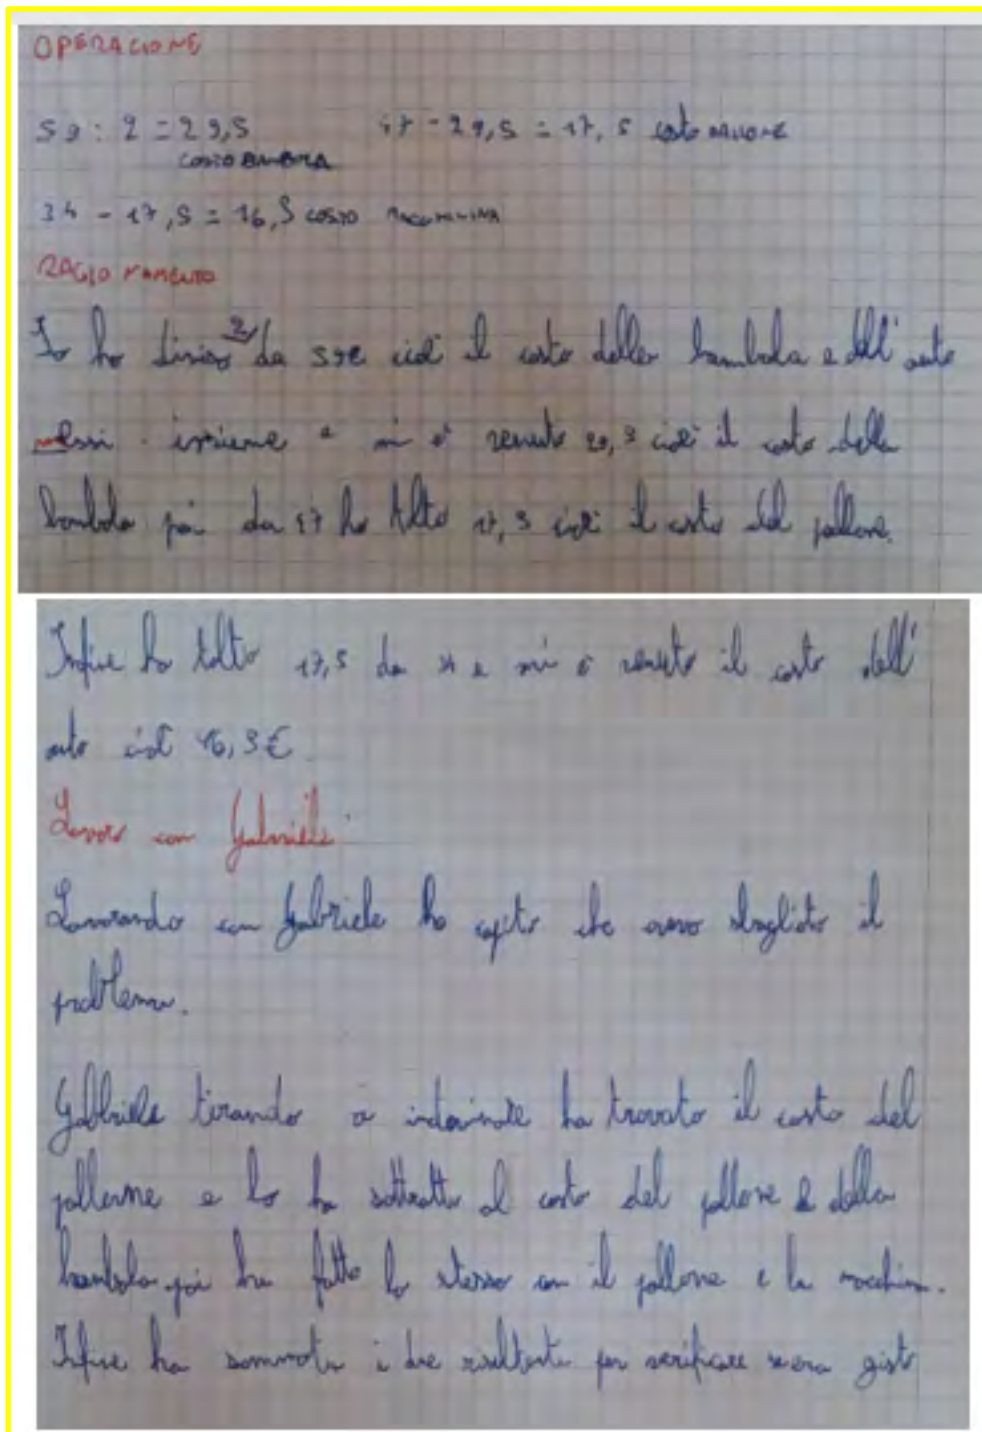 OPERAZIONE
59 : 2 = 29,5 47 - 29,5 = 17,5 costo PALLONE
COSTO BAMBOLA
34 - 17,5 = 16,5 COSTO MACCHININA
RAGIONAMENTO
Io ho diviso 2 da 59€ cioè il costo della bambola e dell'auto
messi insieme e mi è venuto 29,5 cioè il costo della
bambola poi da 47 ho tolto 17,5 cioè il costo del pallone.
Infine ho tolto 17,5 da 34 e mi è venuto il costo dell'
auto cioè 16,5€
Lavoro con Gabriele
Lavorando con Gabriele ho capito che avevo sbagliato il
problema.
Gabriele tirando a indovinare ha trovato il costo del
pallone e lo ha sottratto al costo del pallone e della
bambola poi ha fatto lo stesso con il pallone e la macchina.
Infine ha sommato i due risultati per verificare se era gist